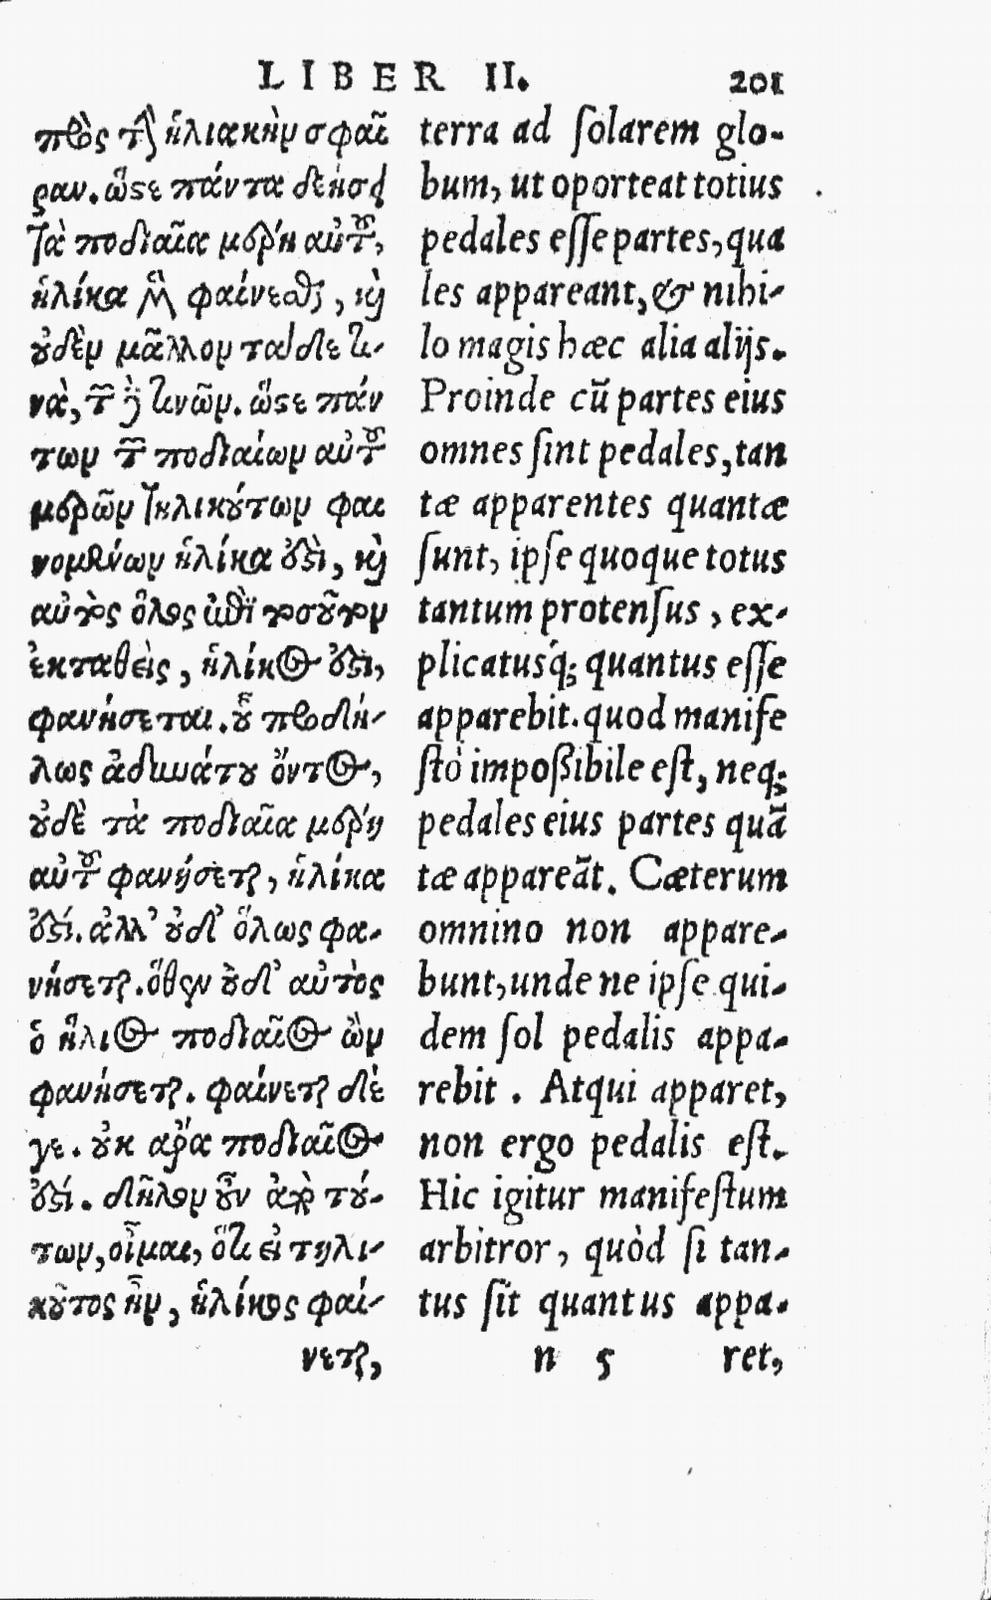 LIBER II. 201
πρὸς τὴν ἡλιακὴν σφαῖ
ραν. ὥστε πάντα δεήσει
τὰ ποδιαῖα μέρη αὐτοῦ,
ἡλίκα ἐστὶ φαίνεσθαι, καὶ
οὐδὲν μᾶλλον τάδε τι-
νὰ, τῶν δέ τινῶν. ὥστε πάν
των τῶν ποδιαίων αὐτοῦ
μερῶν τηλικούτων φαι
νομένων ἡλίκα ἐστὶ, καὶ
αὐτὸς ὅλος ἐπὶ τοσοῦτον
ἐκταθεὶς, ἡλίκος ἐστι,
φανήσεται. οὗ προδή-
λως ἀδυνάτου ὄντος,
οὐδὲ τὰ ποδιαῖα μέρη
αὐτοῦ φανήσεται, ἡλίκα
ἐστί. ἀλλ' οὐδ' ὅλως φα-
νήσεται. ὅθεν οὐδ' αὐτὸς
ὁ ἥλιος ποδιαῖος ὢν
φανήσεται. φαίνεται δέ
γε. οὐκ ἄρα ποδιαῖος
ἐστί. δῆλον οὖν ἀπὸ τού-
των, οἶμαι, ὅτι εἰ τηλι-
κοῦτος ἦν, ἡλίκος φαί-
νεται,
terra ad solarem glo-
bum, ut oporteat totius
pedales esse partes, qua
les appareant, & nihi-
lo magis hæc alia alijs.
Proinde cũ partes eius
omnes sint pedales, tan
tæ apparentes quantæ
sunt, ipse quoque totus
tantum protensus, ex-
plicatusq́; quantus esse
apparebit. quod manife
stò impoßibile est, neq;
pedales eius partes quã
tæ appareãt. Cæterum
omnino non appare-
bunt, unde ne ipse qui-
dem sol pedalis appa-
rebit. Atqui apparet,
non ergo pedalis est.
Hic igitur manifestum
arbitror, quòd si tan-
tus sit quantus appa-
n 5 ret,